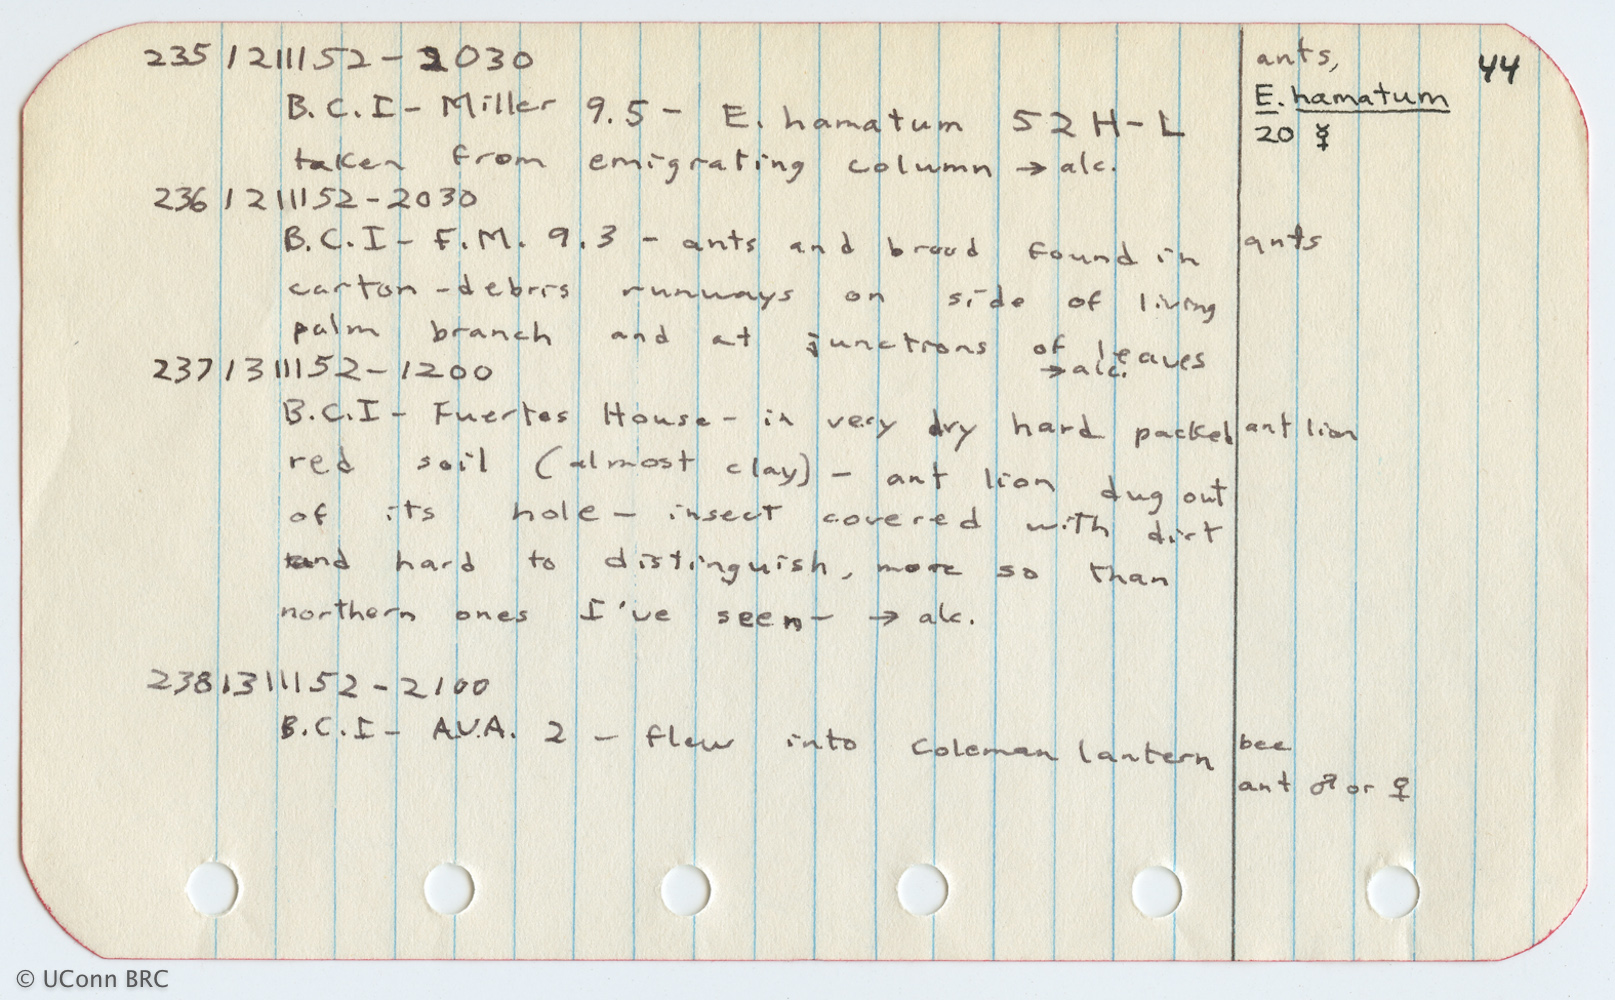 235 121115 2 - 2030 ants, 44
B.C.I - Miller 9.5 - E. hamatum 52 H-L E. hamatum
taken from emigrating column → alc. 20 ☿
236 1211152 - 2030
B.C.I - F.M. 9.3 - ants and brood found in ants
carton-debris runways on side of living
palm branch and at junctions of leaves
→ alc.
237 1311152 - 1200
B.C.I - Fuertes House - in very dry hard packed ant lion
red soil (almost clay) - ant lion dug out
of its hole - insect covered with dirt
and hard to distinguish, more so than
northern ones I've seen - → alc.
238 1311152 - 2100
B.C.I - A.V.A. 2 - flew into Coleman lantern bee
ant ♂ or ♀
© UConn BRC